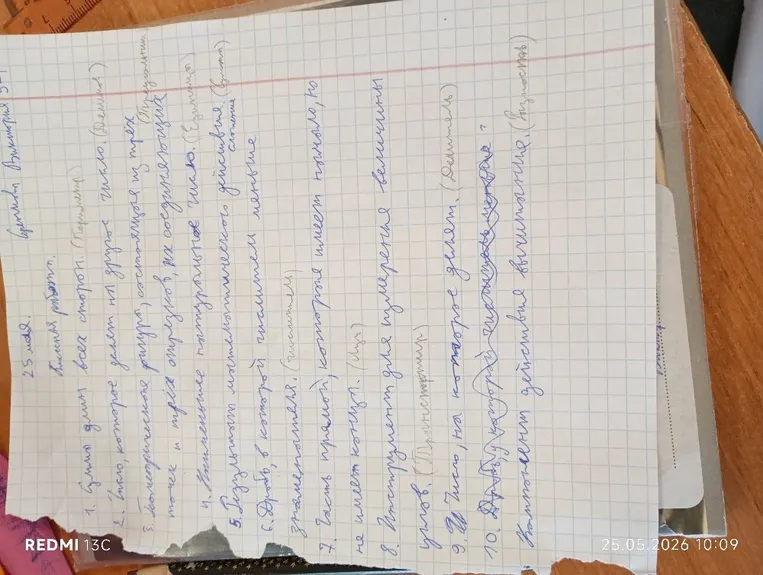 25 мая. Виктория 5-1
работа.
1. Сумма длин всех сторон. (Периметр)
2. Число, которое делят на другое число. (Делимое)
3. Геометрическая фигура, состоящая из трёх (Треугольник)
точек и трёх отрезков, их соединяющих
4. Наименьшее натуральное число. (Единица)
5. Результат математического действия (Сумма)
сложение
6. Дробь, в которой числитель меньше
знаменателя. (числитель)
7. Часть прямой, которая имеет начало, но
не имеет конца. (Луч)
8. Инструмент для измерения величины
углов. (Транспортир)
9. Число, на которое делят. (Делитель)
10. Дробь, у которой числитель меньше?
Компонент действия вычитание. (Разность)
REDMI 13C
25.05.2026 10:09